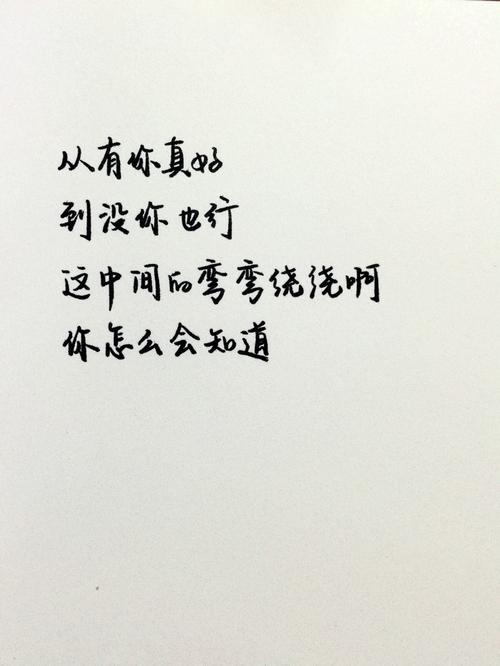 从有你真好
到没你也行
这中间的弯弯绕绕啊
你怎么会知道